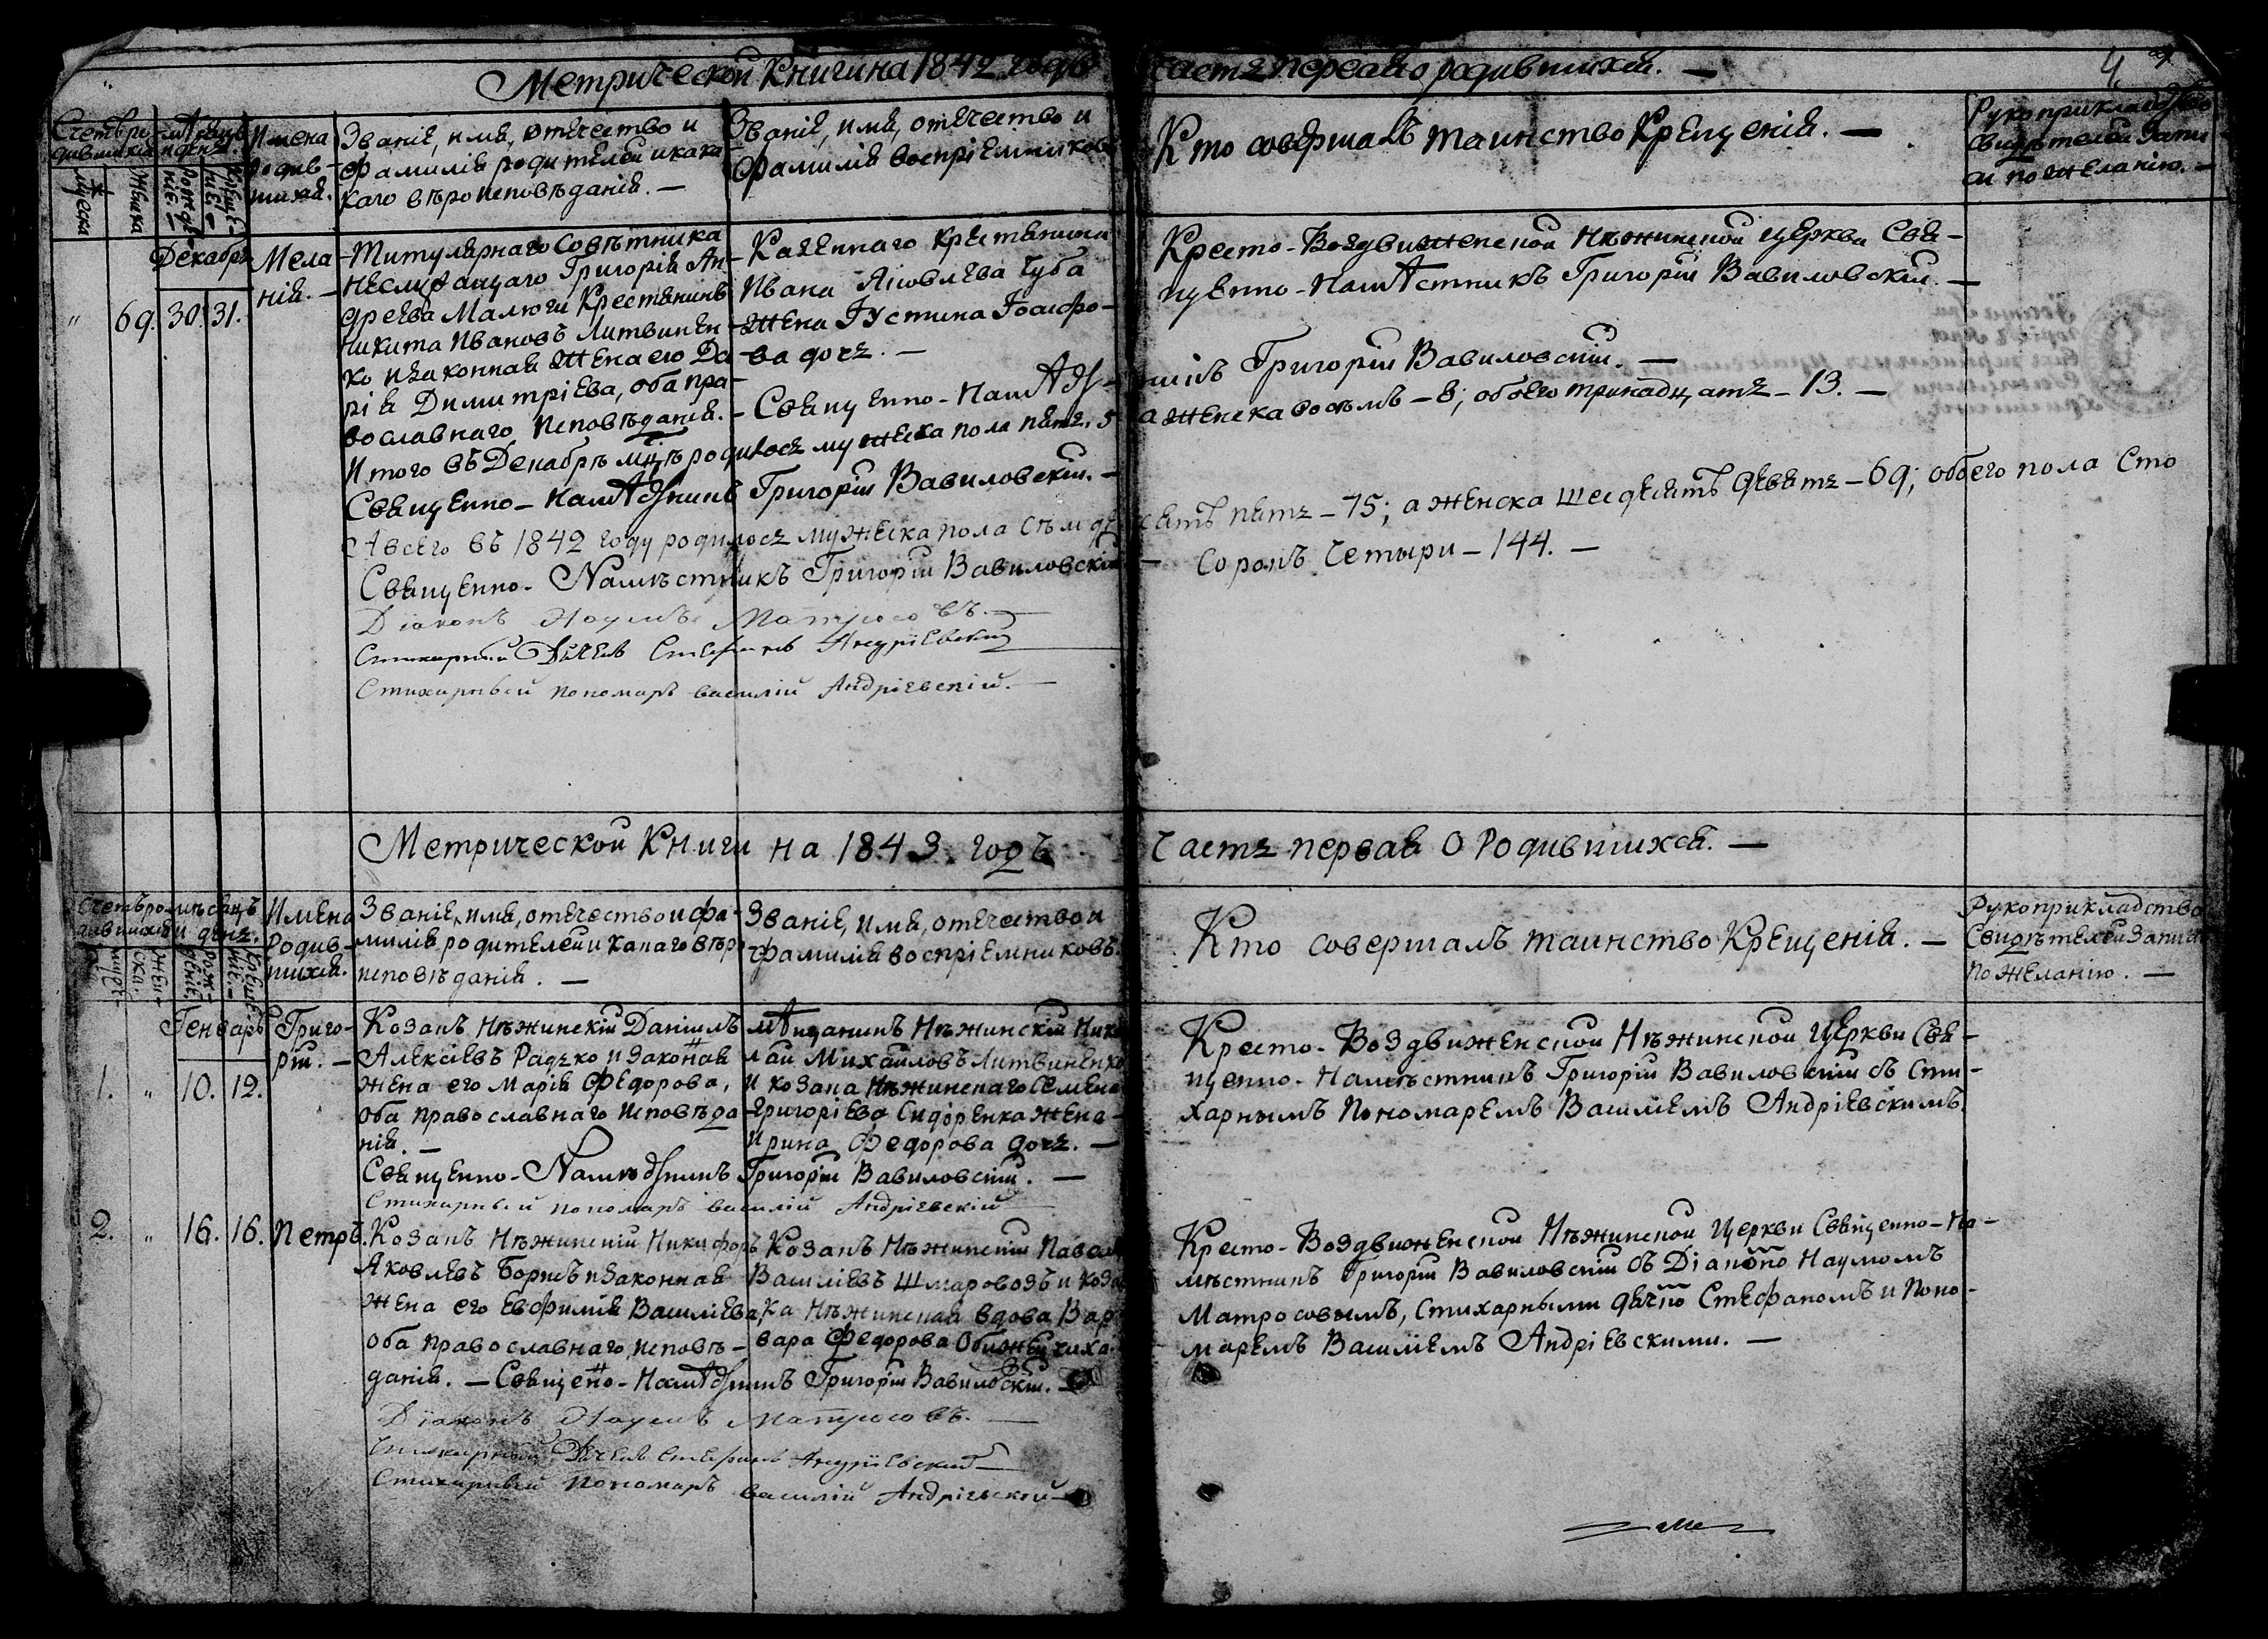 Метрической Книги на 1842 годъ Часть первая о родившихся. —
4
Счетъ ро-
дившихся
Мѣсяцъ
и день.
Имена
родив-
шихся.
Званіе, имя, отечество и
фамилія родителей и кака-
каго вѣроисповѣданія. —
Званіе, имя, отечество и
фамилія воспріемниковъ
Кто совершалъ таинство Крещенія. —
Рукоприкладство
свидѣтелей запи-
си по желанію. —
мужеска
женска
рожде-
ніе.
креще-
ніе
Декабрь
„ 69. 30. 31.
Мела-
нія. —
Титулярнаго Совѣтника
неслужащаго Григорія Ан-
дреева Малюги Крестянинъ
Никита Ивановъ Литвинен-
ко и законная жена его Да-
рія Димитріева, оба пра-
вославнаго исповѣданія. —
Казеннаго крестянина
Ивана Яковлева Чуба
жена Іустина Іосифо-
ва дочь. —
Кресто-Воздвиженской Нѣжинской церкви Свя-
щенно-Намѣстникъ Григорій Вавиловскій. —
Священно-Намѣстникъ Григорій Вавиловскій. —
Итого въ Декабрѣ мцѣ родилось мужеска пола пять. 5 а женска восемь – 8; обоего тринадцать – 13. —
Священно-Намѣстникъ Григорій Вавиловскій. —
А всего въ 1842 году родилось мужеска пола семдесять пять – 75; а женска шесдесятъ девять – 69; обоего пола Сто
сорокъ четыри – 144. —
Священно-Намѣстникъ Григорій Вавиловскій —
Діаконъ Наумъ Матросовъ. —
Стихарный Дячекъ Стефанъ Андріевский
Стихарный пономарь василій Андріевскій. —
Метрической Книги на 1843. годъ Часть первая О Родившихся. —
Счетъ ро-
дившихся
мѣсяцъ
и день.
Имена
Родив-
шихся.
Званіе, имя, отечество и фа-
милія родителей и какаго вѣро-
исповѣданія. —
Званіе, имя, отечество и
фамилія воспріемниковъ.
Кто совершалъ таинство Крещенія. —
Рукоприкладство
Свидѣтелей записи
по желанію. —
муже-
ска.
жен-
ска.
рож-
деніе.
креще-
ніе. —
Генварь
1. „ 10. 12.
Григо-
рій. —
Козакъ Нѣжинскій Даніилъ
Алексіевъ Радько и законая
жена его Марія Федорова,
оба православнаго исповѣда-
нія. —
мѣщанинъ Нѣжинскій Нико-
лай Михаиловъ Литвиненко
и козака Нѣжинскаго Семена
Григоріева Сидоренка жена
Ирина Федорова дочь. —
Кресто-Воздвиженской Нѣжинской церкви Свя-
щенно-Намѣстникъ Григорій Вавиловскій съ Сти-
харнымъ Пономаремъ Василіемъ Андріевскимъ.
Священно-Намѣстникъ Григорій Вавиловскій. —
Стихарный пономарь василій Андріевскій
2. „ 16. 16. Петръ.
Козакъ Нѣжинскій Никифоръ
Яковлевъ Борисъ и законная
жена его Евфимія Василіева,
оба православнаго исповѣ-
данія. — Священо-Намѣстникъ Григорій Вавиловскій.
Козакъ Нѣжинскій Павелъ
Василіевъ Шмаровозъ и коза-
ка Нѣжинская вдова Вар-
вара Федорова
Кресто-Воздвиженской Нѣжинской Церкви Священно-На-
мѣстникъ Григорій Вавиловскій съ Діакономъ Наумомъ
Матросовымъ, Стихарными дячкомъ Стефаномъ и Поно-
маремъ Василіемъ Андріевскими. —
Діаконъ Наумъ Матросовъ. —
Стихарный Дячекъ Стефанъ Андріевский —
Стихарный Пономарь василій Андріевский —